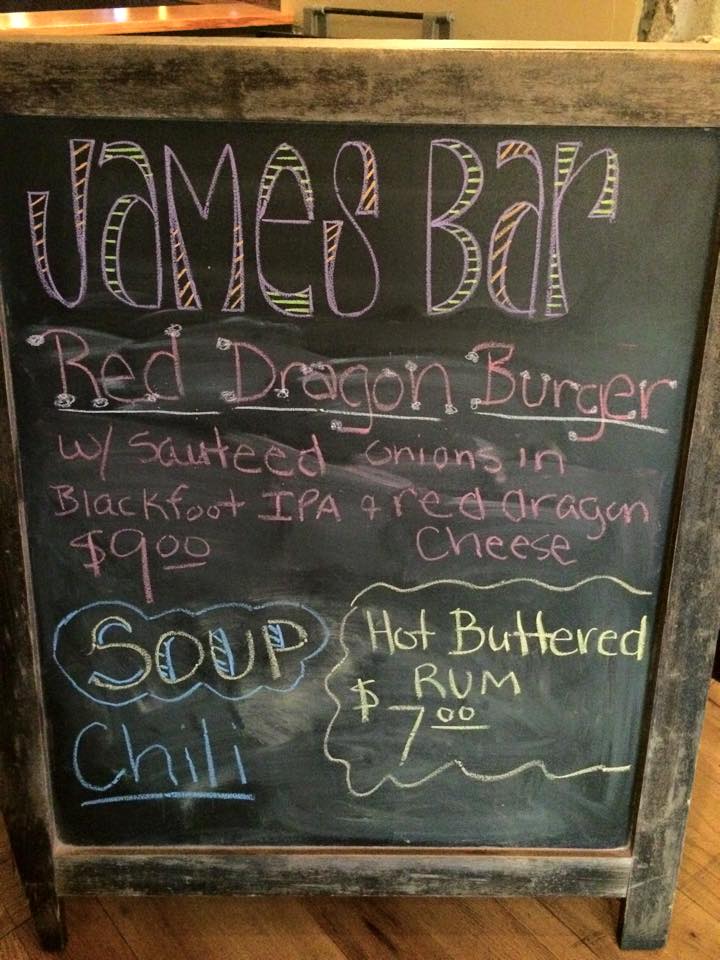 James Bar
Red Dragon Burger
w/ Sauteed onions in
Blackfoot IPA & red dragon
$9.00 Cheese
SOUP
Chili
Hot Buttered
RUM
$7.00